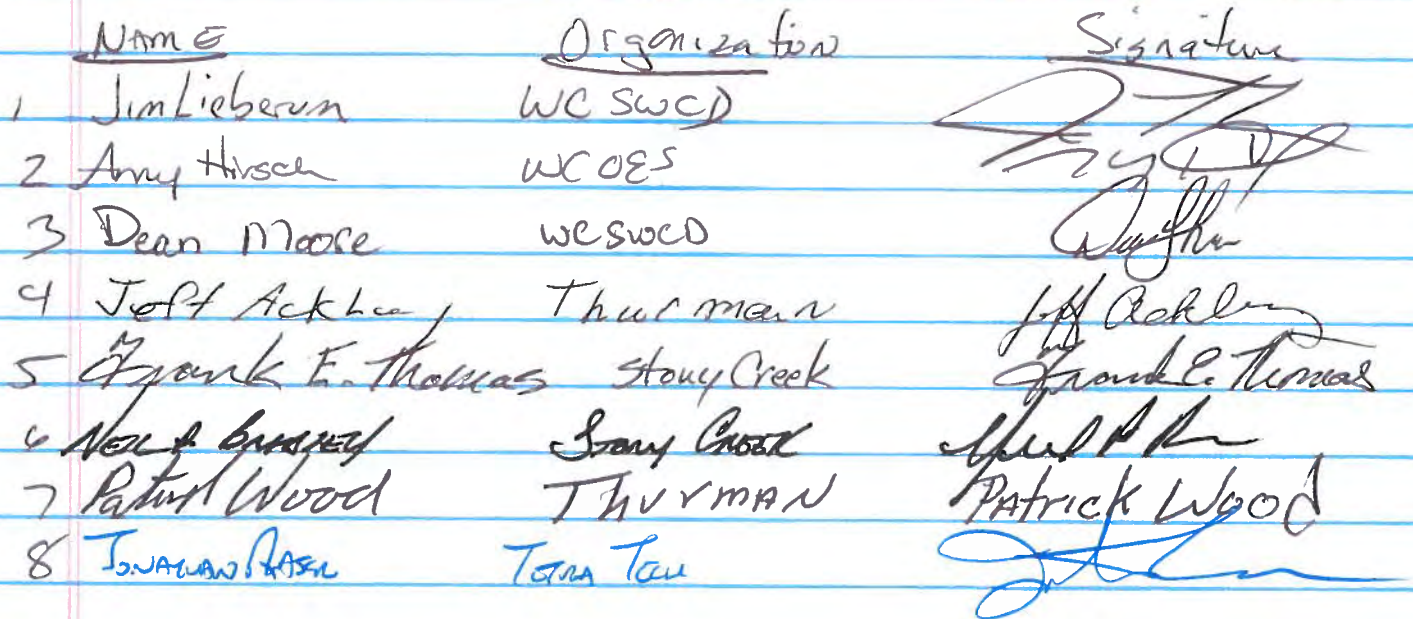 NAME Organization Signature
1 Jim Lieberum WC SWCD
2 Amy Hirsch WCOES
3 Dean Moore WCSWCD
4 Jeff Thurman Jeff
5 Frank E. Thomas Stony Creek Frank E. Thomas
6 Stony Creek
7 Patrick Wood Thurman Patrick Wood
8 Tetra Tech